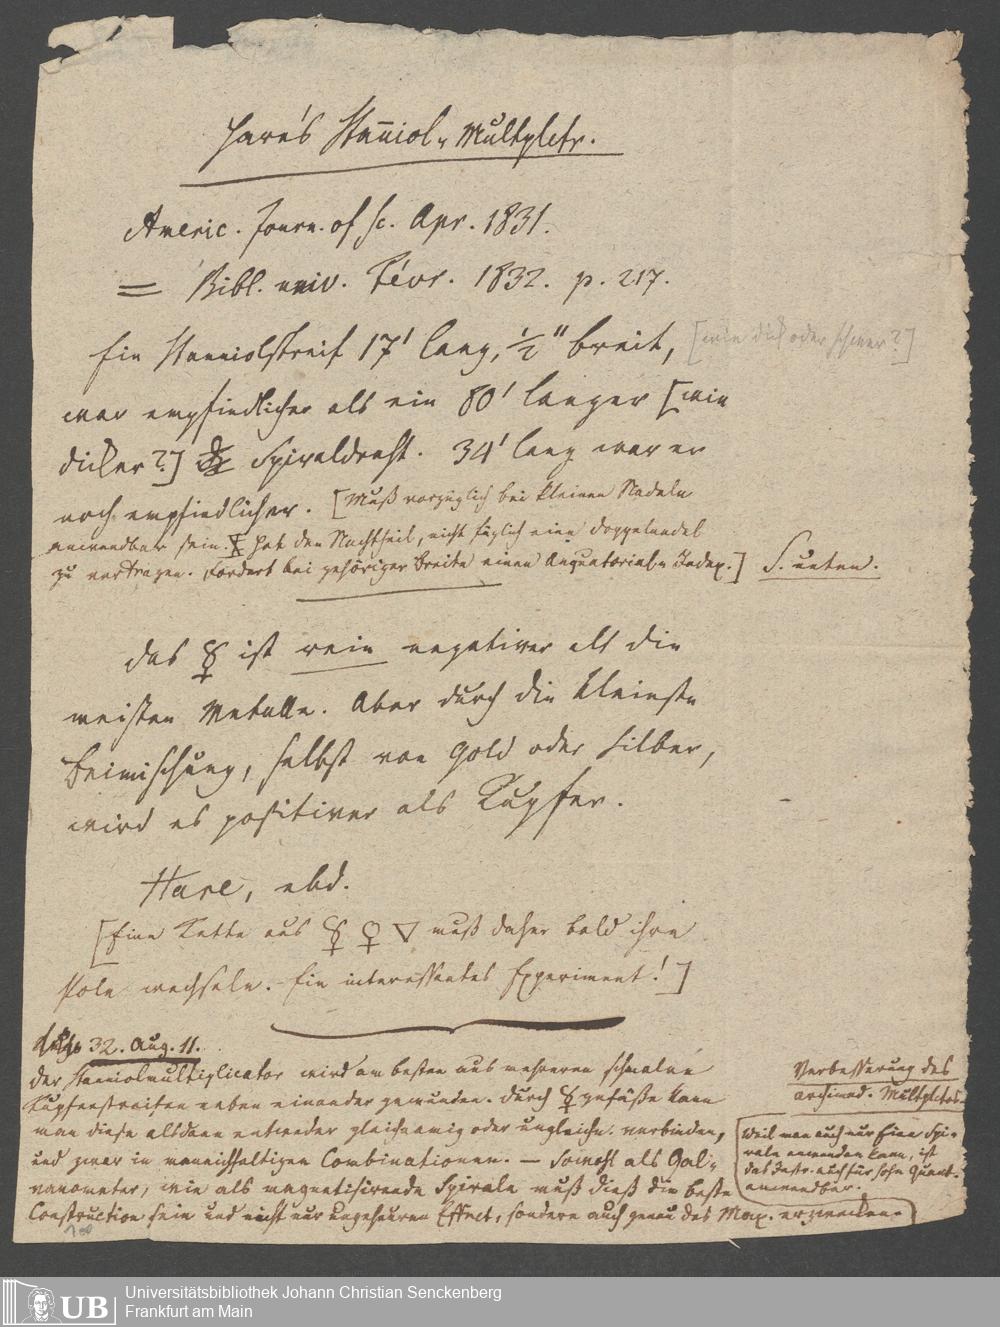 Hare's Stanniol-Multpletr.
Americ. Journ. of sc. Apr. 1831.
= Bibl. univ. Févr. 1832. p. 217.
Ein Stanniolstreif 17' lang, ½" breit, [wie dick oder schwer?]
war empfindlicher als ein 80' langer [wie
dicker?] Spiraldraht. 34' lang war er
noch empfindlicher. [Muß vorzüglich bei kleinen Nadeln
anwendbar sein. Hat den Nachtheil, nicht füglich eine Doppelnadel
zu vertragen. Fordert bei gehöriger Breite einen Aequatorial-Index.] S. unten.
Das ☿ ist rein negativer als die
meisten Metalle. Aber durch die kleinste
Beimischung, selbst von Gold oder Silber,
wird es positiver als Kupfer.
Hare, ebd.
[Eine Kette aus ☿ ♀ ▽ muß daher bald ihre
Pole wechseln. - Ein interessantes Experiment!]
32. Aug. 11.
Der Stanniolmultiplicator wird am besten aus mehreren schmalen
Kupferstreifen neben einander gewunden. Durch ☿gefäße kann
man diese alsdann entweder gleichnamig oder ungleichn. verbinden,
und zwar in mannichfaltigen Combinationen. — Sowohl als Gal-
vanometer, wie als magnetisirende Spirale muß dieß die beste
Construction sein und nicht nur ungeheuren Effect, sondern auch genau das Max. erzwecken.
Verbesserung des
archimed. Multpletors
Weil man auch nur Eine Spi-
rale anwenden kann, ist
das Instr. auch für hohe Quant.
anwendbar.
Universitätsbibliothek Johann Christian Senckenberg
Frankfurt am Main
UB